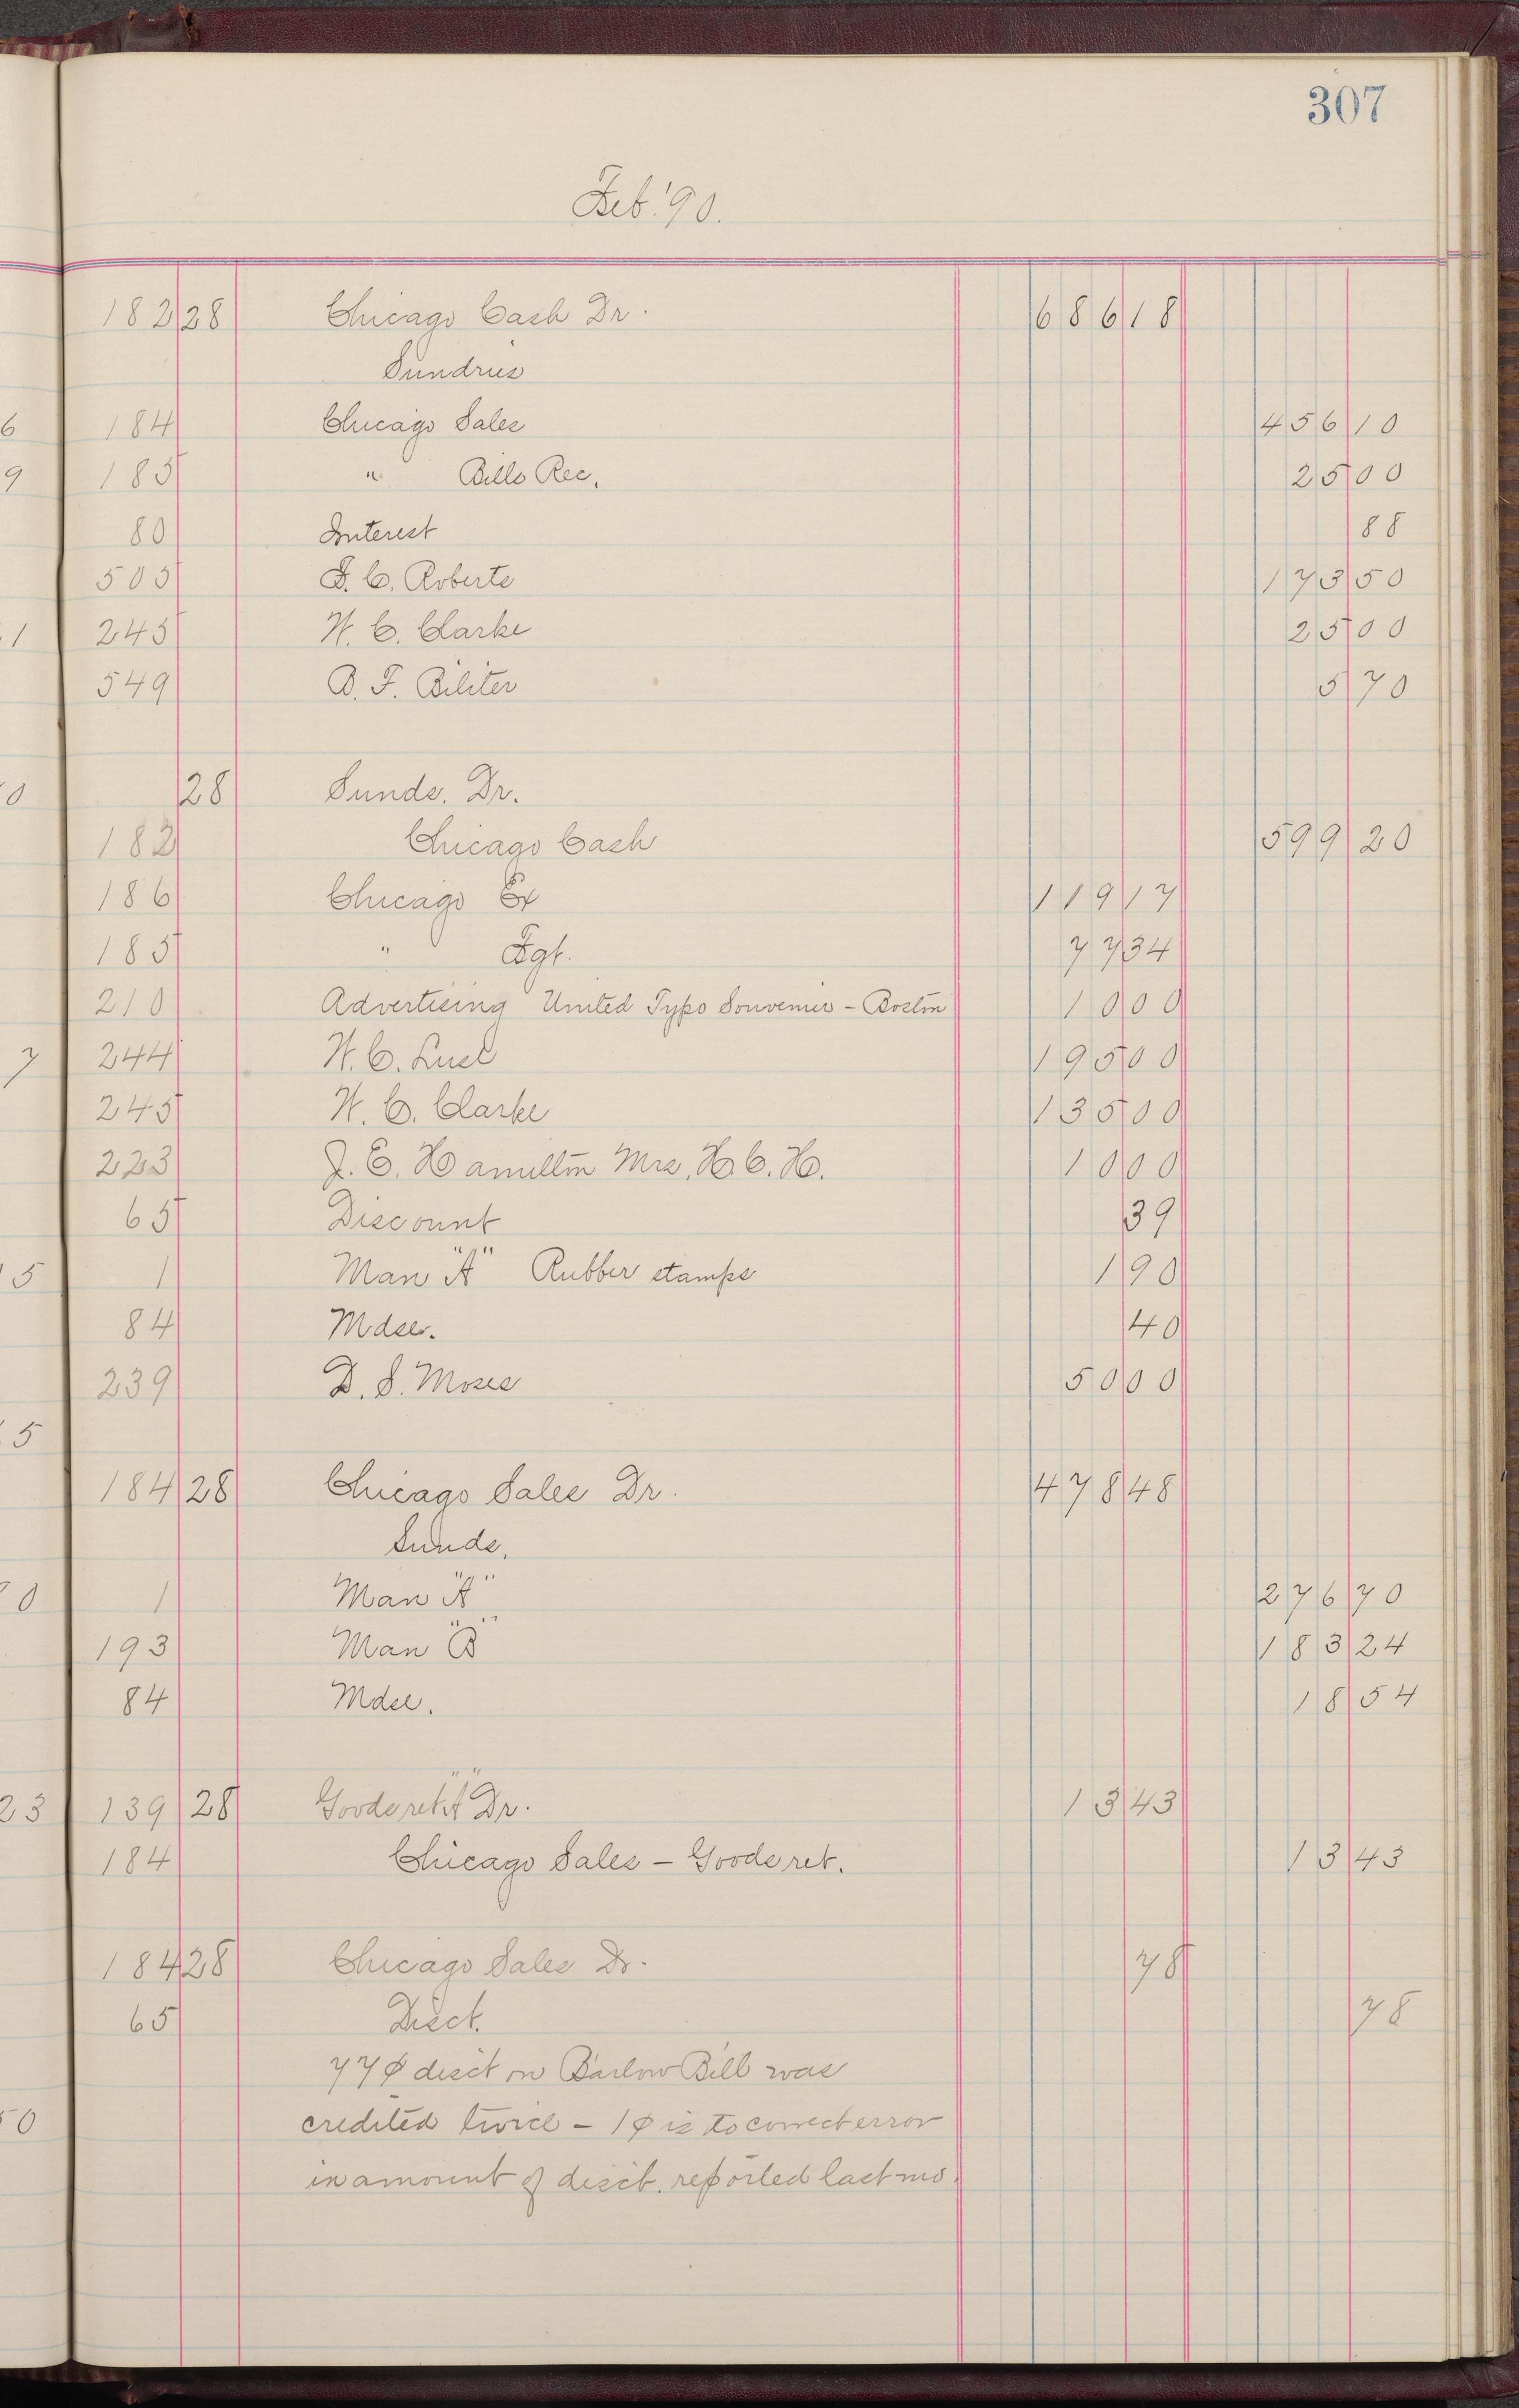 307
Feb. '90.
182 28 Chicago Cash Dr. 686 18
Sundries
6 184 Chicago Sales 456 10
9 185 " Bills Rec. 25 00
80 Interest 88
505 F. C. Roberts 173 50
1 245 W. C. Clarke 25 00
549 B. F. Biliter 5 70
0 28 Sunds. Dr.
182 Chicago Cash 599 20
186 Chicago Ex 119 17
185 " Fgt. 77 34
210 Advertising United Typo Souvenir - Boston 10 00
7 244 W. C. Luse 195 00
245 W. C. Clarke 135 00
223 J. E. Hamilton Mrs. H. C. H. 10 00
65 Discount 39
5 1 Man "A" Rubber stamps 1 90
84 Mdse. 40
239 D. S. Moses 50 00
5
184 28 Chicago Sales Dr. 478 48
Sunds.
0 1 Man "A" 276 70
193 Man "B" 183 24
84 Mdse. 18 54
23 139 28 Goods ret "A" Dr. 13 43
184 Chicago Sales - Goods ret. 13 43
184 28 Chicago Sales Dr. 78
65 Disct. 78
77¢ disct on Barlow Bill was
50 credited twice - 1¢ is to correct error
in amount of disct. reported last mo.